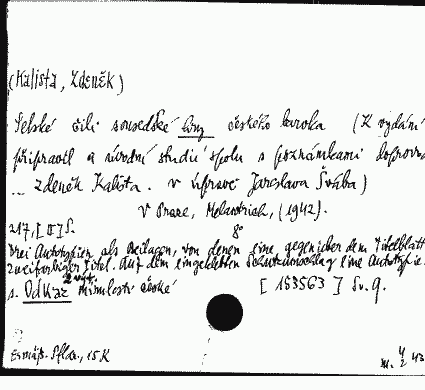 (Kalista, Zdeněk)
Selské čili sousedské hry českého baroka (K vydání
připravil a úvodní studií spolu s poznámkami doprovo
... Zdeněk Kalista. V úpravě Jaroslava Švába)
V Praze, Melantrich, (1942).
217, [II] S. 8°
Drei Autotypien als Beilagen, von denen eine gegenüber dem Titelblatt
zweifarbiger Titel. Auf dem eingeklebten Schutzumschlag eine Autotypie.
s. Odkaz minulosti české [153563] Sv. 9.
Ermäß. Pflex., 15 K